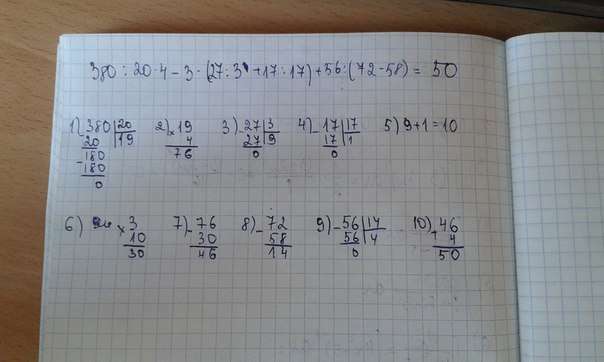 380 : 20 · 4 - 3 · (27 : 3 + 17 : 17) + 56 : (72 - 58) = 50
1) 380 | 20 2) 19 3) 27 | 3 4) 17 | 17 5) 9 + 1 = 10
20 | 19 × 4 - 27 | 9 - 17 | 1
180 76 0 0
- 180
0
6) × 3 7) - 76 8) - 72 9) - 56 | 14 10) + 46
10 30 58 56 | 4 4
30 46 14 0 50